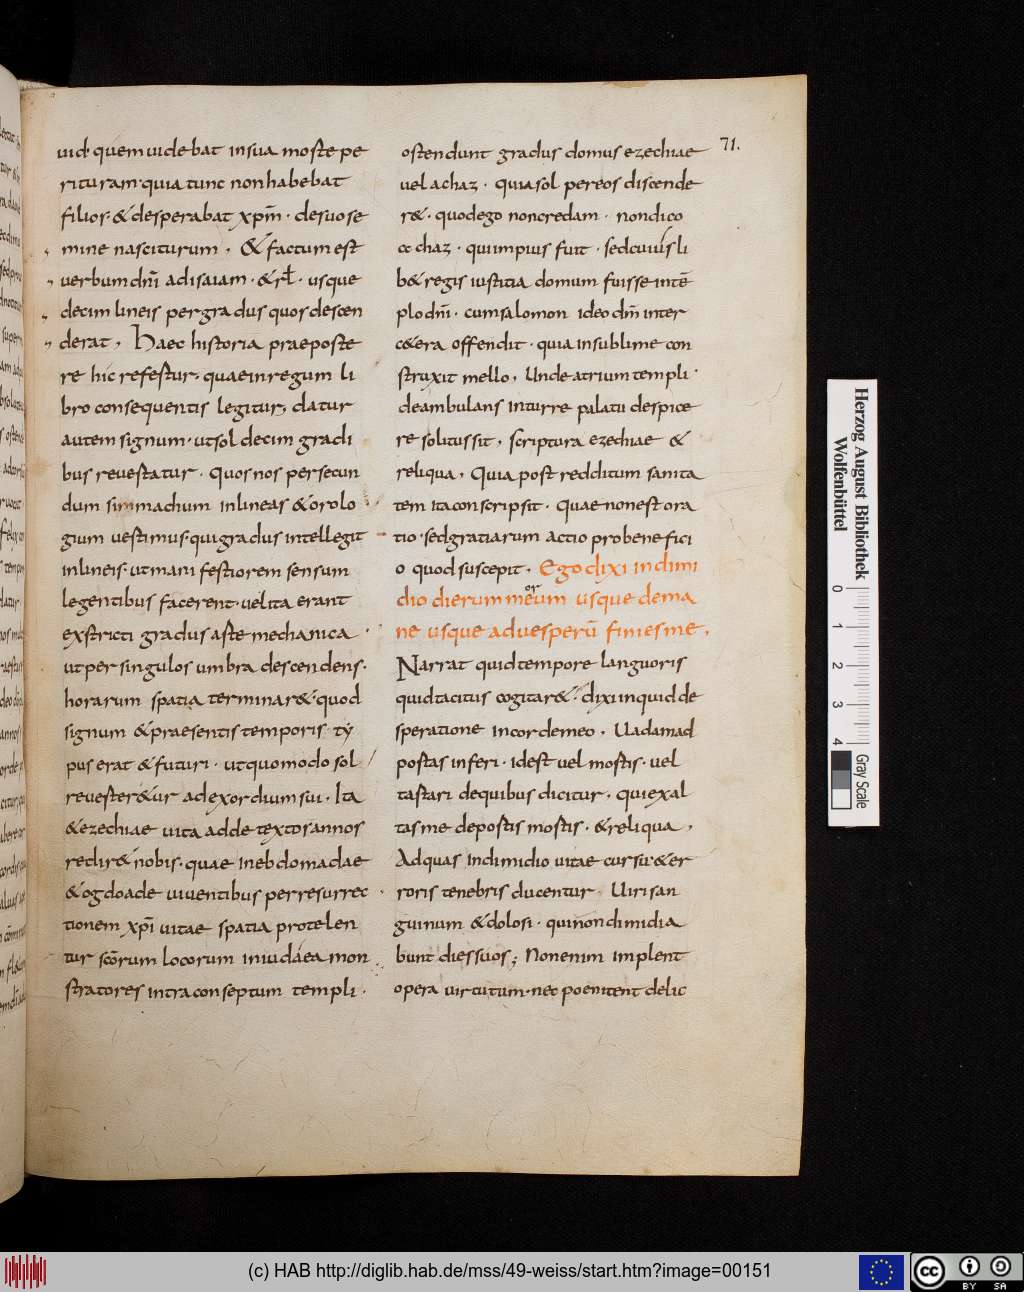 71.
uid· quem uidebat insua morte pe
rituram· quia tunc nonhabebat
filios· & desperabat xp̄m̄· desuose
mine nasciturum· & factum est
verbum dn̄i adisaiam· & rł· usque
decim lineis per gradus quos descen
derat, Haec historia praeposte
re hic refertur, quae in regum li
bro consequentis legitur, datur
autem signum· ut sol decim gradi
bus reuertatur· Quos nos persecun
dum simmachum inlineas & orolo
gium uertimus· qui gradus intellegit
inlineis· ut manifestiorem sensum
legentibus facerent· uel ita erant
extricti gradus arte mechanica·
ut per singulos umbra descendens·
horarum spatia terminar&· quod
signum & praesentis temporis ty
pus erat & futuri· ut quomodo sol
reuerter&ur ad exordium sui· Ita
& ezechiae uita adde textos annos
redir& nobis· quae in ebdomadae
& ogdoade uiuentibus per resurrec
tionem xp̄i uitae spatia protelen
tur sc̄orum locorum in iudaea mon
stratores intra conseptum templi·
ostendunt gradus domus ezechiae
uel achaz· quia sol per eos discende
r&· quod ego non credam· non dico
achaz· qui impius fuit· sed cuiusli
b& regis iustitia domum fuisse in tē
plo dn̄i· cum salomon ideo dn̄m inter
c&era offendit· quia in sublime con
struxit mello, Unde atrium templi·
deambulans in turre palatii despice
re solitus sit, scriptura ezechiae &
reliqua, Quia post redditum sanita
tem ita conscripsit· Quae non est ora
tio· sed gratiarum actio pro benefici
o quod suscepit, Ego dixi in dimi
dio dierum meorum usque dema
ne usque ad uesperū finies me,
Narrat quid tempore languoris
quid tacitus cogitar&· dixi inquid de
speratione in corde meo, Uadam ad
portas inferi· id est uel mortis· uel
tartari de quibus dicitur, qui exal
tas me de portis mortis· & reliqua,
Ad quas in dimidio uitae cursu· & er
roris tenebris ducentur· Uiri san
guinum & dolosi· qui non dimidia
bunt dies suos; Non enim implent
opera uirtutum· nec poenitent delic
Herzog August Bibliothek
Wolfenbüttel
0 1 2 3 4 Gray Scale
(c) HAB http://diglib.hab.de/mss/49-weiss/start.htm?image=00151
cc BY SA